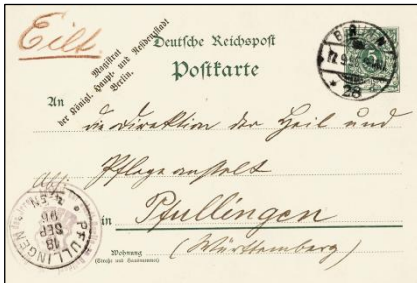 Eilt.
Magistrat
der Königl. Haupt- und Residenzstadt
Berlin.
Deutsche Reichspost
Postkarte
BERLIN
17.9
28
An
die Direktion der Heil und
Pflegeanstalt
in Pfullingen
(Württemberg)
Wohnung
(Straße und Hausnummer)
PFULLINGEN
18
SEP
96